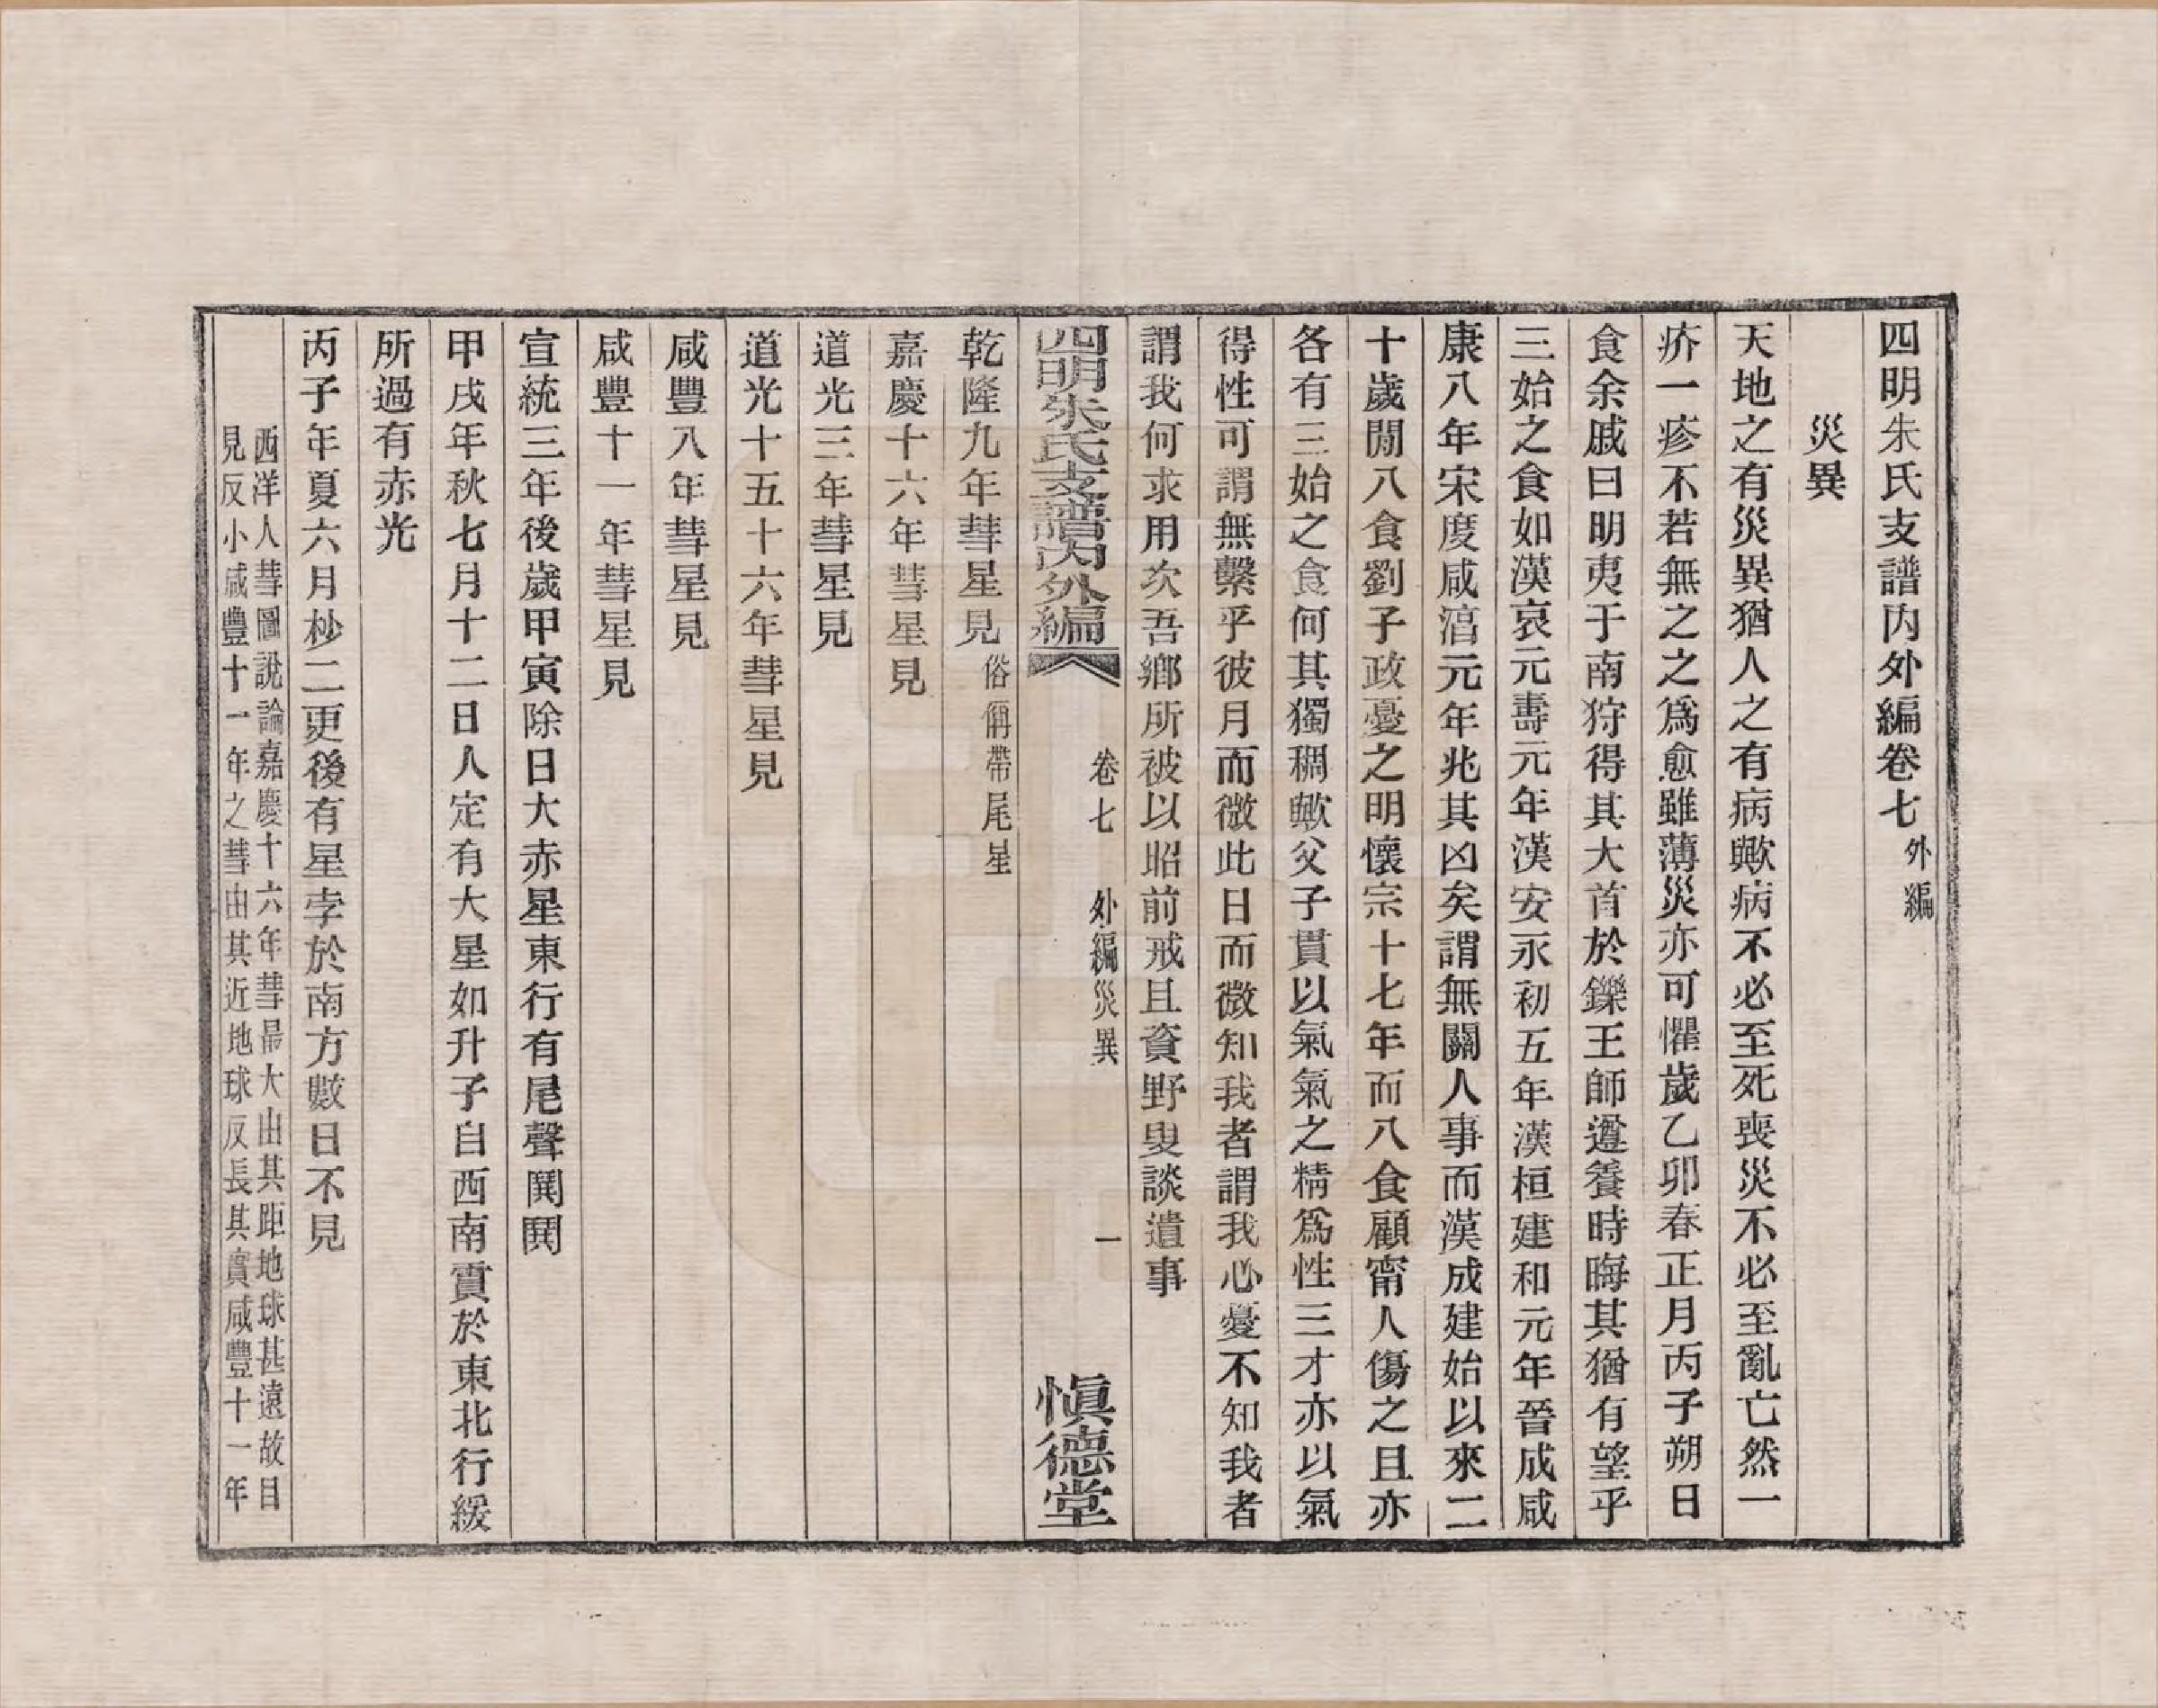 四明朱氏支譜內外編卷七外編
災異
天地之有災異猶人之有病歟病不必至死喪災不必至亂亡然一
疥一疹不若無之之爲愈雖薄災亦可懼歲乙卯春正月丙子朔日
食余戚曰明夷于南狩得其大首於鑠王師遵養時晦其猶有望乎
三始之食如漢哀元壽元年漢安永初五年漢桓建和元年晉成咸
康八年宋度咸湻元年兆其凶矣謂無關人事而漢成建始以來二
十歲閒八食劉子政憂之明懷宗十七年而八食顧甯人傷之且亦
各有三始之食何其獨稠歟父子貫以氣氣之精爲性三才亦以氣
得性可謂無繫乎彼月而微此日而微知我者謂我心憂不知我者
謂我何求用次吾鄉所被以昭前戒且資野叟談遺事
四明朱氏支譜內外編 卷七 外編災異 一 愼德堂
乾隆九年彗星見俗偁帶尾星
嘉慶十六年彗星見
道光三年彗星見
道光十五十六年彗星見
咸豐八年彗星見
咸豐十一年彗星見
宣統三年後歲甲寅除日大赤星東行有尾聲鬨鬨
甲戌年秋七月十二日人定有大星如升子自西南賈於東北行緩
所過有赤光
丙子年夏六月杪二更後有星孛於南方數日不見
西洋人彗圖說論嘉慶十六年彗最大由其距地球甚遠故目
見反小咸豐十一年之彗由其近地球反長其實咸豐十一年